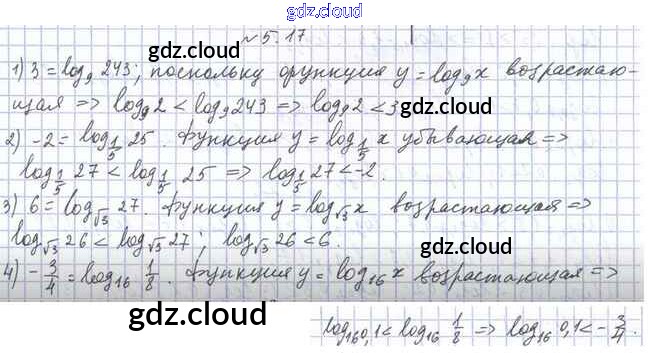 gdz.cloud
№ 5.17
gdz.cloud
1) 3 = log₉ 243; поскольку функция y = log₉x возрастаю-
щая => log₉2 < log₉243 => log₉2 < 3
gdz.cloud
2) -2 = log_{1/5} 25. Функция y = log_{1/5} x убывающая =>
log_{1/5} 27 < log_{1/5} 25 => log_{1/5} 27 < -2.
3) 6 = log_{√3} 27. Функция y = log_{√3} x возрастающая =>
gdz.cloud
log_{√3} 26 < log_{√3} 27; log_{√3} 26 < 6.
4) -3/4 = log₁₆ 1/8. Функция y = log₁₆ x возрастающая =>
gdz.cloud
gdz.cloud
log₁₆0,1 < log₁₆ 1/8 => log₁₆ 0,1 < -3/4.